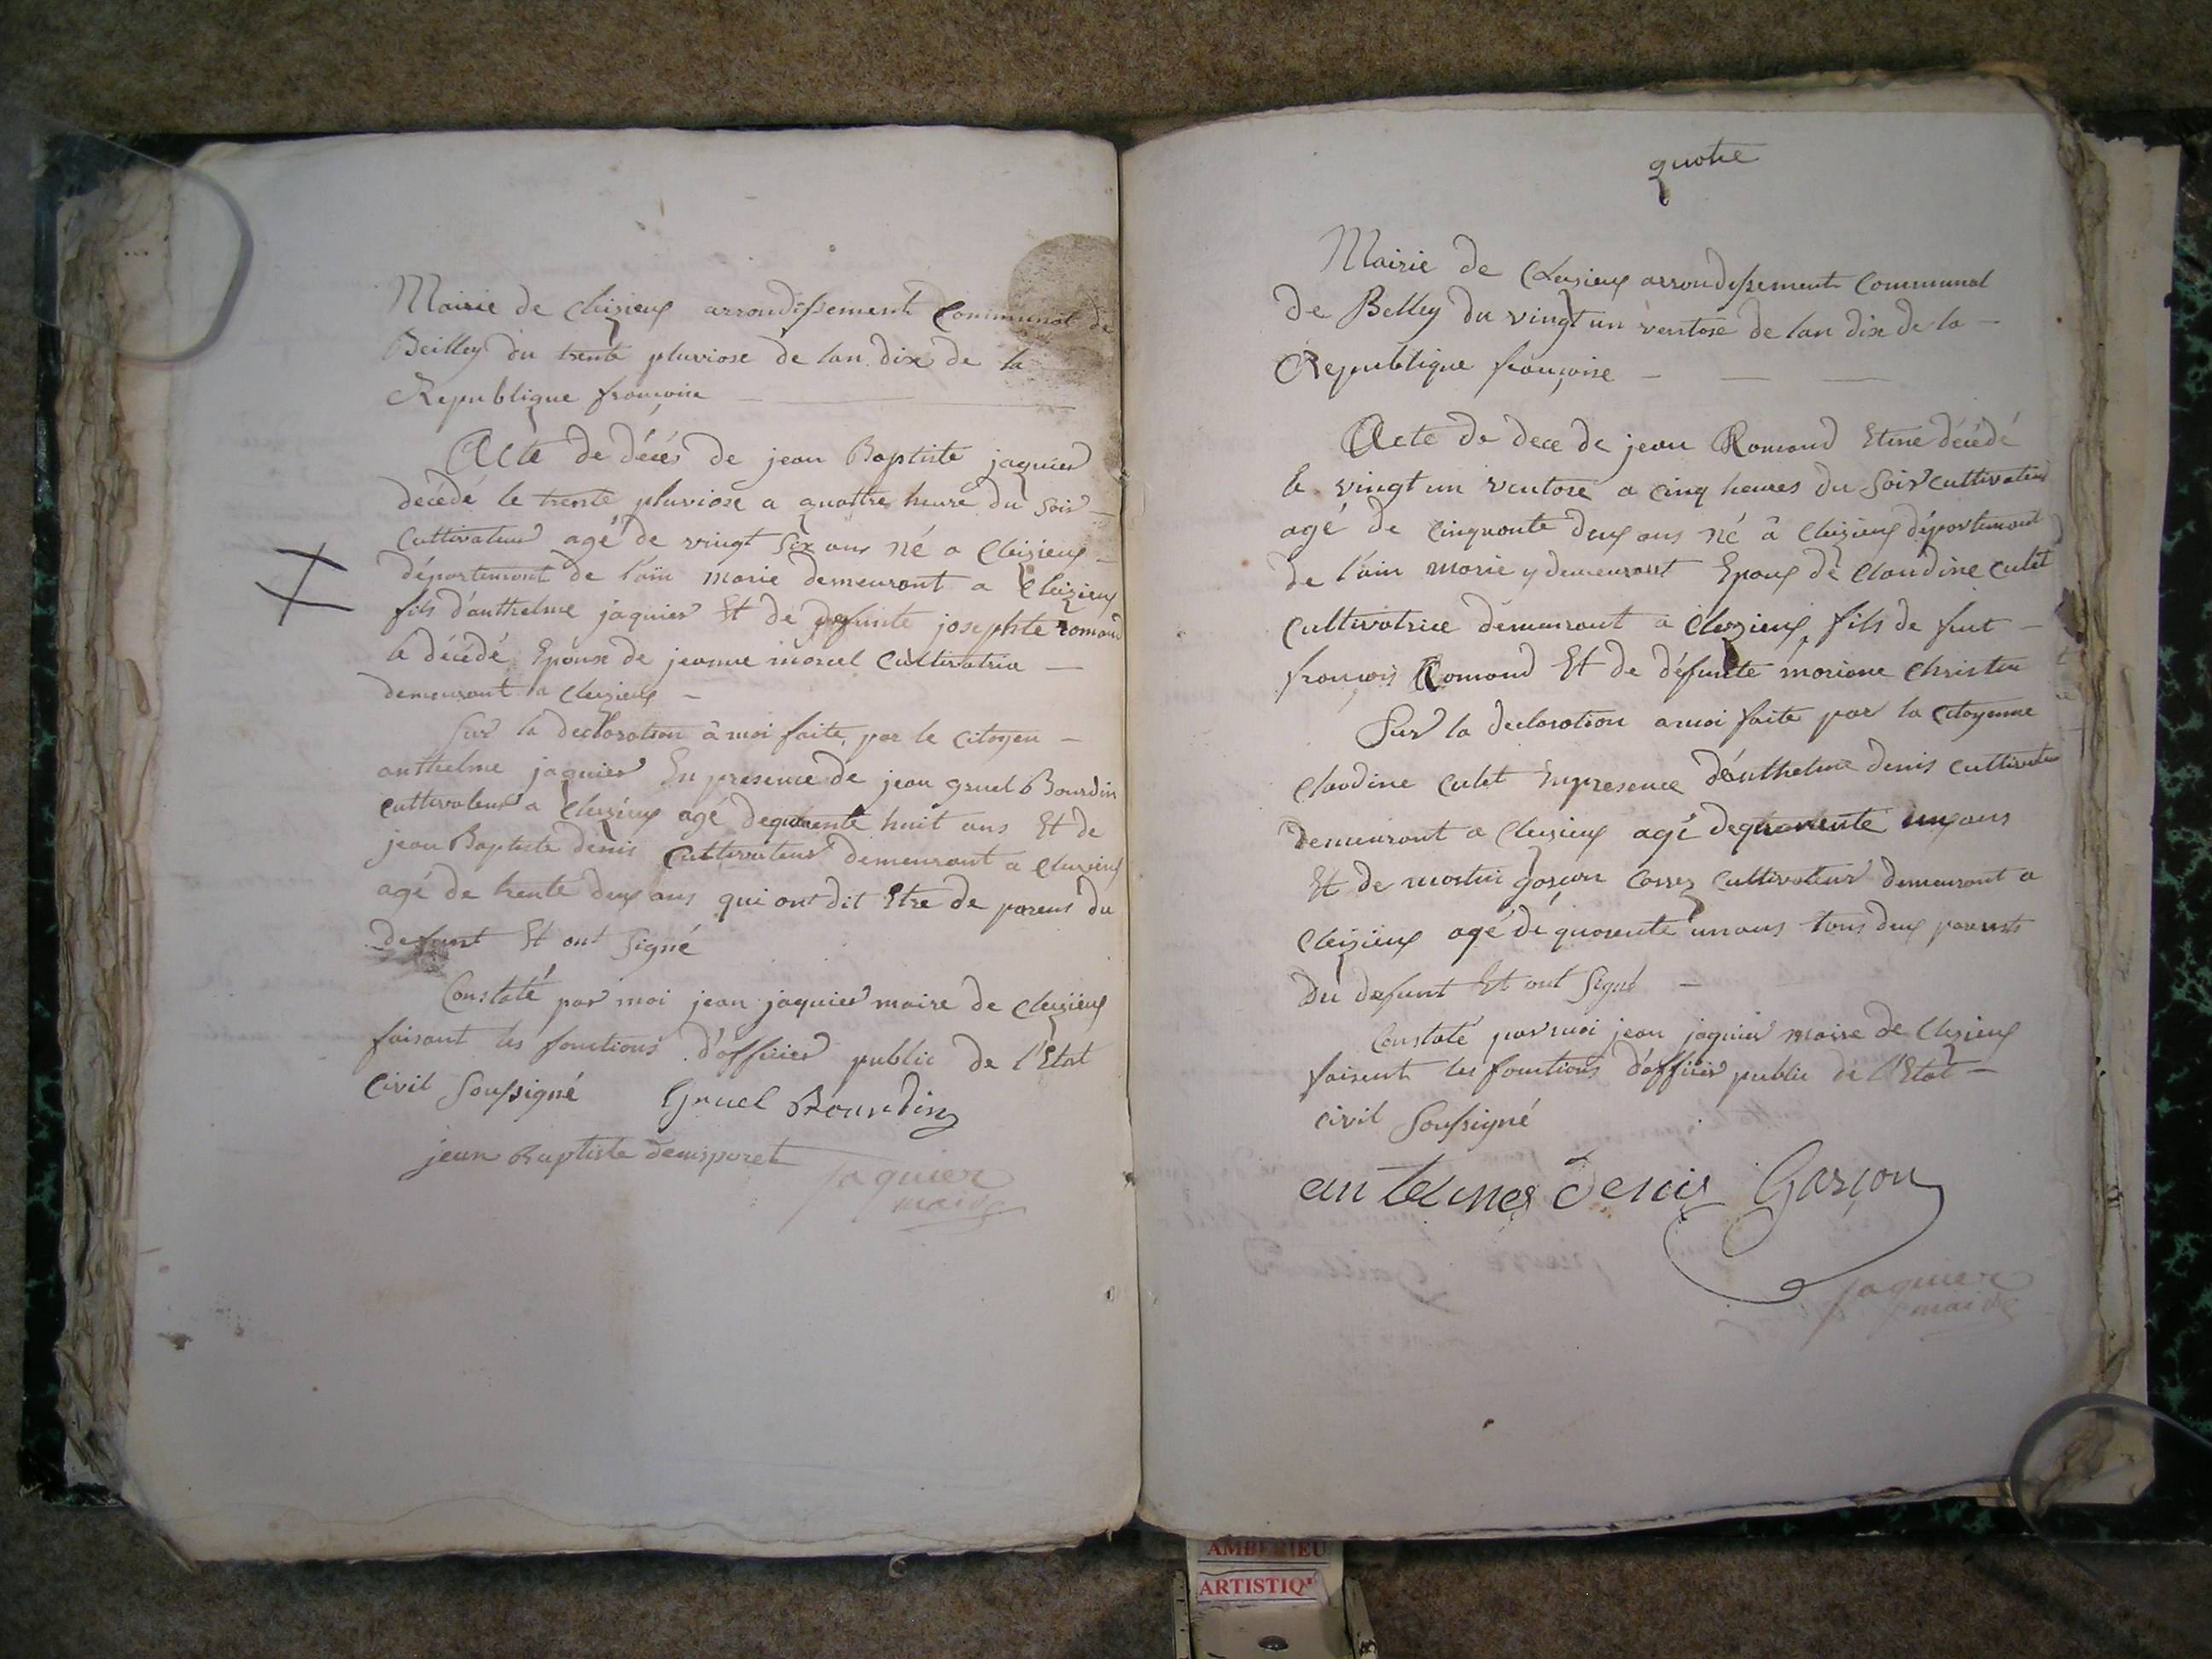 Mairie de Cleizieux arrondissement Communal de
Beilley du trente pluviose de lan dix de la
Republique francoise
Acte de décés de jean Baptiste jaquier
décédé le trente pluviose a quattre heure du soir
Cultivateur agé de vingt six ans né a Cleizieux
département de l'ain marie demeurant a Cleizieux
fils d'anthelme jaquier Et de defunte josephte romand
le décédé Epoux de jeanne morel Cultivatrice
demeurant a Cleizieux
Sur la declaration à moi faite par le Citoyen
anthelme jaquier En presence de jean gruel Bourdin
cultivateur a Cleizieux agé de quarente huit ans Et de
jean Baptiste denis Cultivateur demeurant a Cleizieux
agé de trente deux ans qui ont dit Etre de parens du
defunt Et ont Signé
Constaté par moi jean jaquier maire de Cleizieux
faisant les fonctions d'officier public de l'Etat
Civil Soussigné Gruel Bourdin
jean Baptiste denis
jaquier
maire
quatre
Mairie de Cleizieux arrondissement Communal
de Belley du vingt un ventose de lan dix de la
Republique françoise
Acte de dece de jean Romand décédé
le vingt un ventose a cinq heures du Soir cultivateur
agé de cinquante deux ans né â Cleizieux département
de l'ain marie y demeurant Epoux de Claudine culet
cultivatrice demeurant a Cleizieux fils de feut
françois Romand Et de défunte mariane Christin
Sur la declaration a moi faite par la Citoyenne
Claudine culet En presence d'anthelme denis cultivateur
demeurant a Cleizieux agé de quarente ans
Et de martin garçon cultivateur demeurant a
Cleizieux agé de quarente un ans tous deux parents
du defunt Et ont Signé
Constaté par moi jean jaquier maire de Cleizieux
faisent les fonctions d'officier public de l'Etat
civil Soussigné
antelmes denis Garçon
jaquier
maire
AMBERIEU
ARTISTIQ